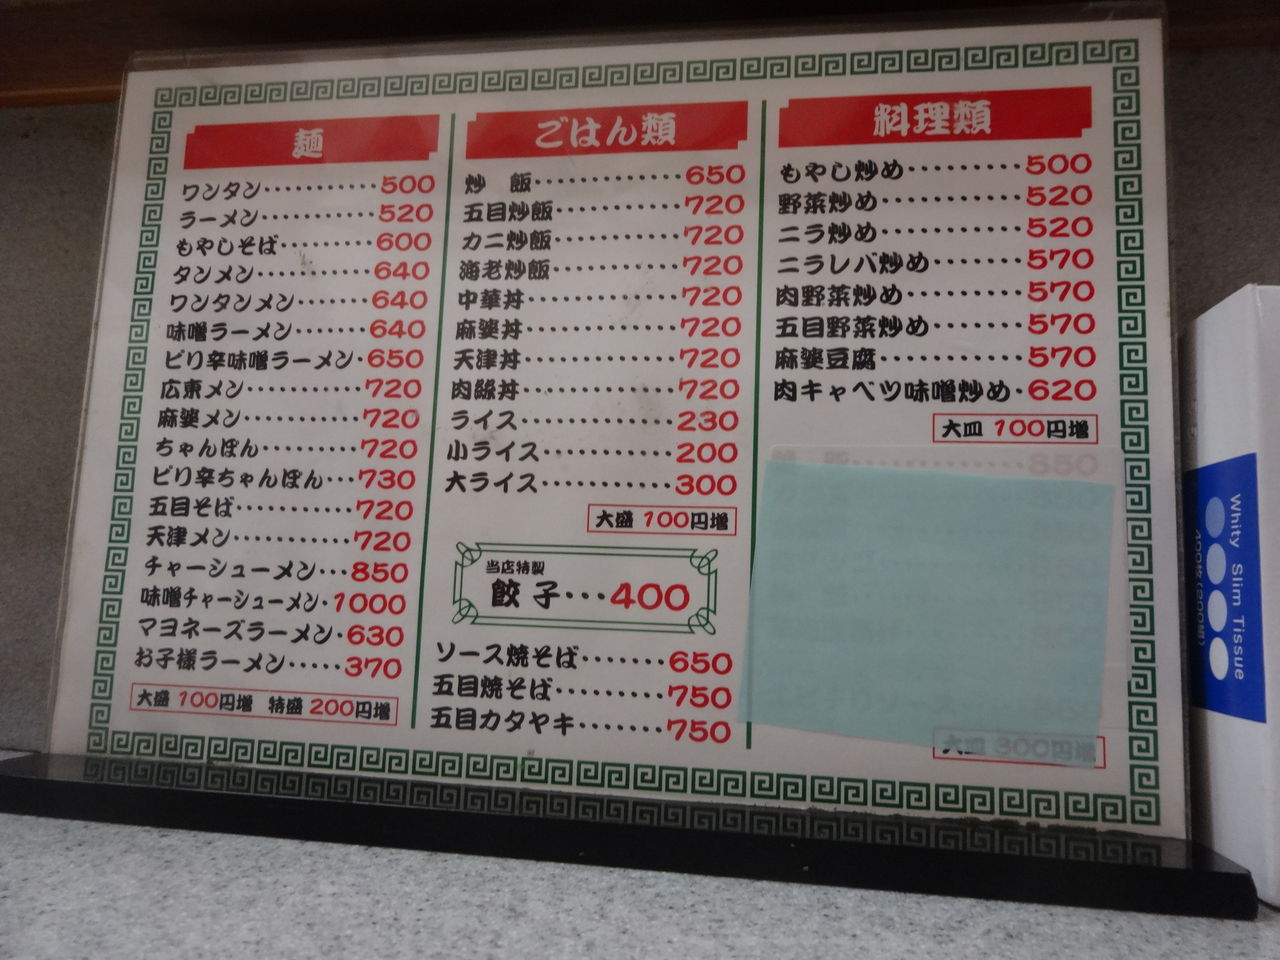 麺
ワンタン…………500
ラーメン…………520
もやしそば………600
タンメン…………640
ワンタンメン……640
味噌ラーメン……640
ピリ辛味噌ラーメン・650
広東メン…………720
麻婆メン…………720
ちゃんぽん………720
ピリ辛ちゃんぽん…730
五目そば…………720
天津メン…………720
チャーシューメン…850
味噌チャーシューメン・1000
マヨネーズラーメン・630
お子様ラーメン……370
大盛 100円増 特盛 200円増
ごはん類
炒 飯……………650
五目炒飯…………720
カニ炒飯…………720
海老炒飯…………720
中華丼……………720
麻婆丼……………720
天津丼……………720
肉絲丼……………720
ライス……………230
小ライス…………200
大ライス…………300
大盛 100円増
当店特製
餃子…400
ソース焼そば……650
五目焼そば………750
五目カタヤキ……750
料理類
もやし炒め………500
野菜炒め…………520
ニラ炒め…………520
ニラレバ炒め……570
肉野菜炒め………570
五目野菜炒め……570
麻婆豆腐…………570
肉キャベツ味噌炒め・620
大皿 100円増
850
大皿 300円増
Whity Slim Tissue
400枚(200組)